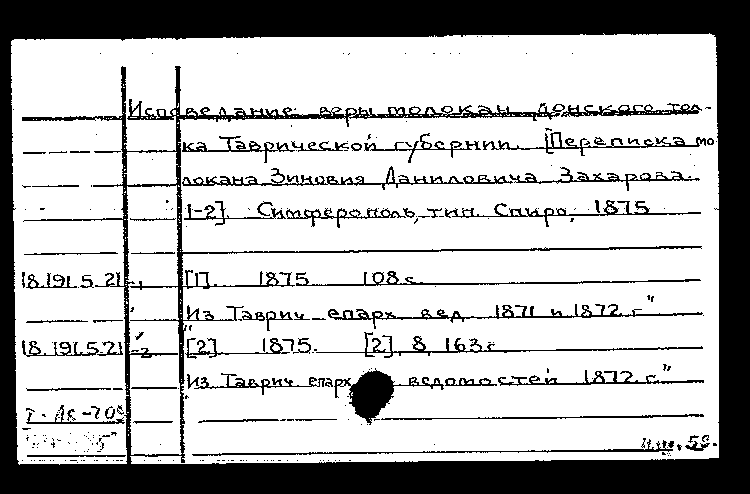 Исповедание веры молокан донского тол-
ка Таврической губернии. [Переписка мо
локана Зиновия Даниловича Захарова.
1-2]. Симферополь, тип. Спиро, 1875
18.191.5.21 -1 [1]. 1875 108 с.
"Из Таврич. епарх. вед. 1871 и 1872 г."
18.191.5.21 -2 [2]. 1875. [2], 8, 163 с.
"Из Таврич. епарх. ведомостей 1872 г."